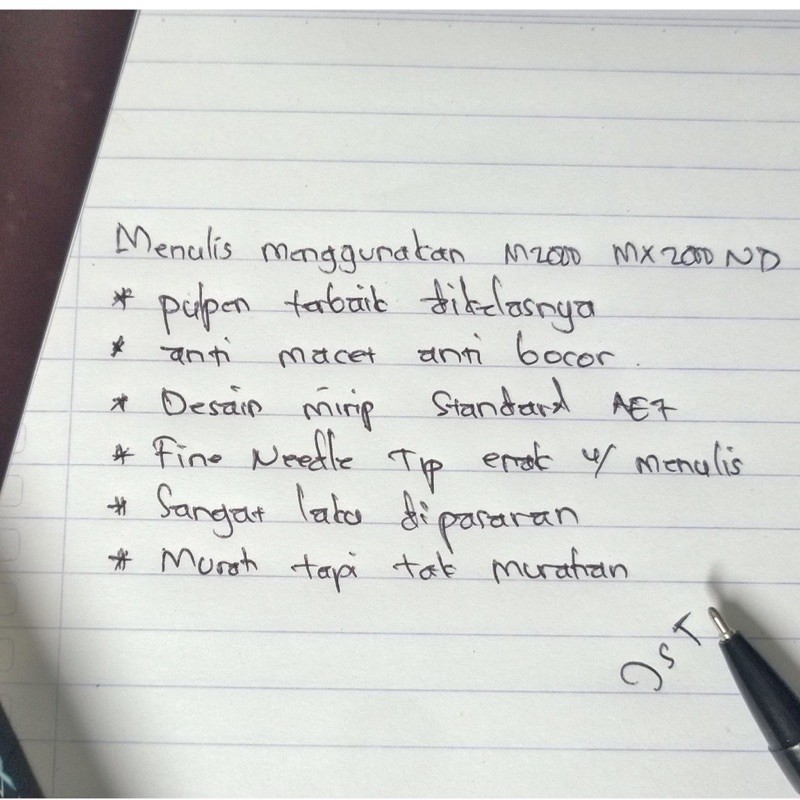 Menulis menggunakan M2000 MX2000 ND
* pulpen terbaik dikelasnya
* anti macet anti bocor.
* Desain mirip Standard AE7
* Fine Needle Tip enak u/ menulis
* Sangat laku dipasaran
* Murah tapi tak murahan